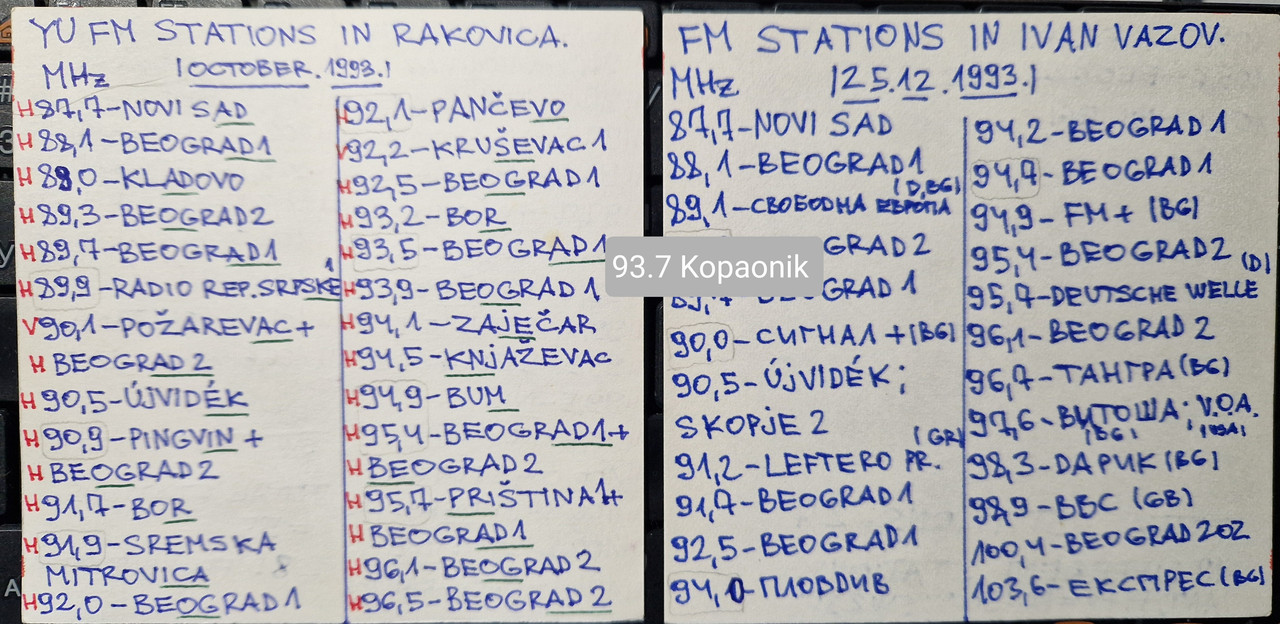 YU FM STATIONS IN RAKOVICA.
MHz |OCTOBER.1993.|
H87,7-NOVI SAD
H88,1-BEOGRAD1
H88,0-KLADOVO
H89,3-BEOGRAD2
H89,7-BEOGRAD1
H89,9-RADIO REP.SRPSKE1
V90,1-POŽAREVAC+
H BEOGRAD2
H90,5-ÚJVIDÉK
H90,9-PINGVIN+
H BEOGRAD2
H91,7-BOR
H91,9-SREMSKA
MITROVICA
H92,0-BEOGRAD1
H92,1-PANČEVO
V92,2-KRUŠEVAC1
H92,5-BEOGRAD1
H93,2-BOR
H93,5-BEOGRAD1
H93,9-BEOGRAD1
H94,1-ZAJEČAR
H94,5-KNJAŽEVAC
H94,9-BUM
H95,4-BEOGRAD1+
H BEOGRAD2
H95,7-PRIŠTINA1+
H BEOGRAD1
H96,1-BEOGRAD2
H96,5-BEOGRAD2
93.7 Kopaonik
FM STATIONS IN IVAN VAZOV.
MHz |25.12.1993.|
87,7-NOVI SAD
88,1-BEOGRAD1
89,1-СВОБОДНА ЕВРОПА (D,BG)
GRAD2
GRAD1
90,0-СИГНАЛ+(BG)
90,5-ÚJVIDÉK;
SKOPJE 2
91,2-LEFTERO PR. (GR)
91,7-BEOGRAD1
92,5-BEOGRAD1
94,0-ПЛОВДИВ
94,2-BEOGRAD1
94,7-BEOGRAD1
94,9-FM+(BG)
95,4-BEOGRAD2
95,7-DEUTSCHE WELLE (D)
96,1-BEOGRAD2
96,7-ТАНГРА(BG)
97,6-ВИТОША; V.O.A.
(BG) (USA)
98,3-DАРИК(BG)
98,9-BBC (GB)
100,4-BEOGRAD202
103,6-ЕКСПРЕС(BG)